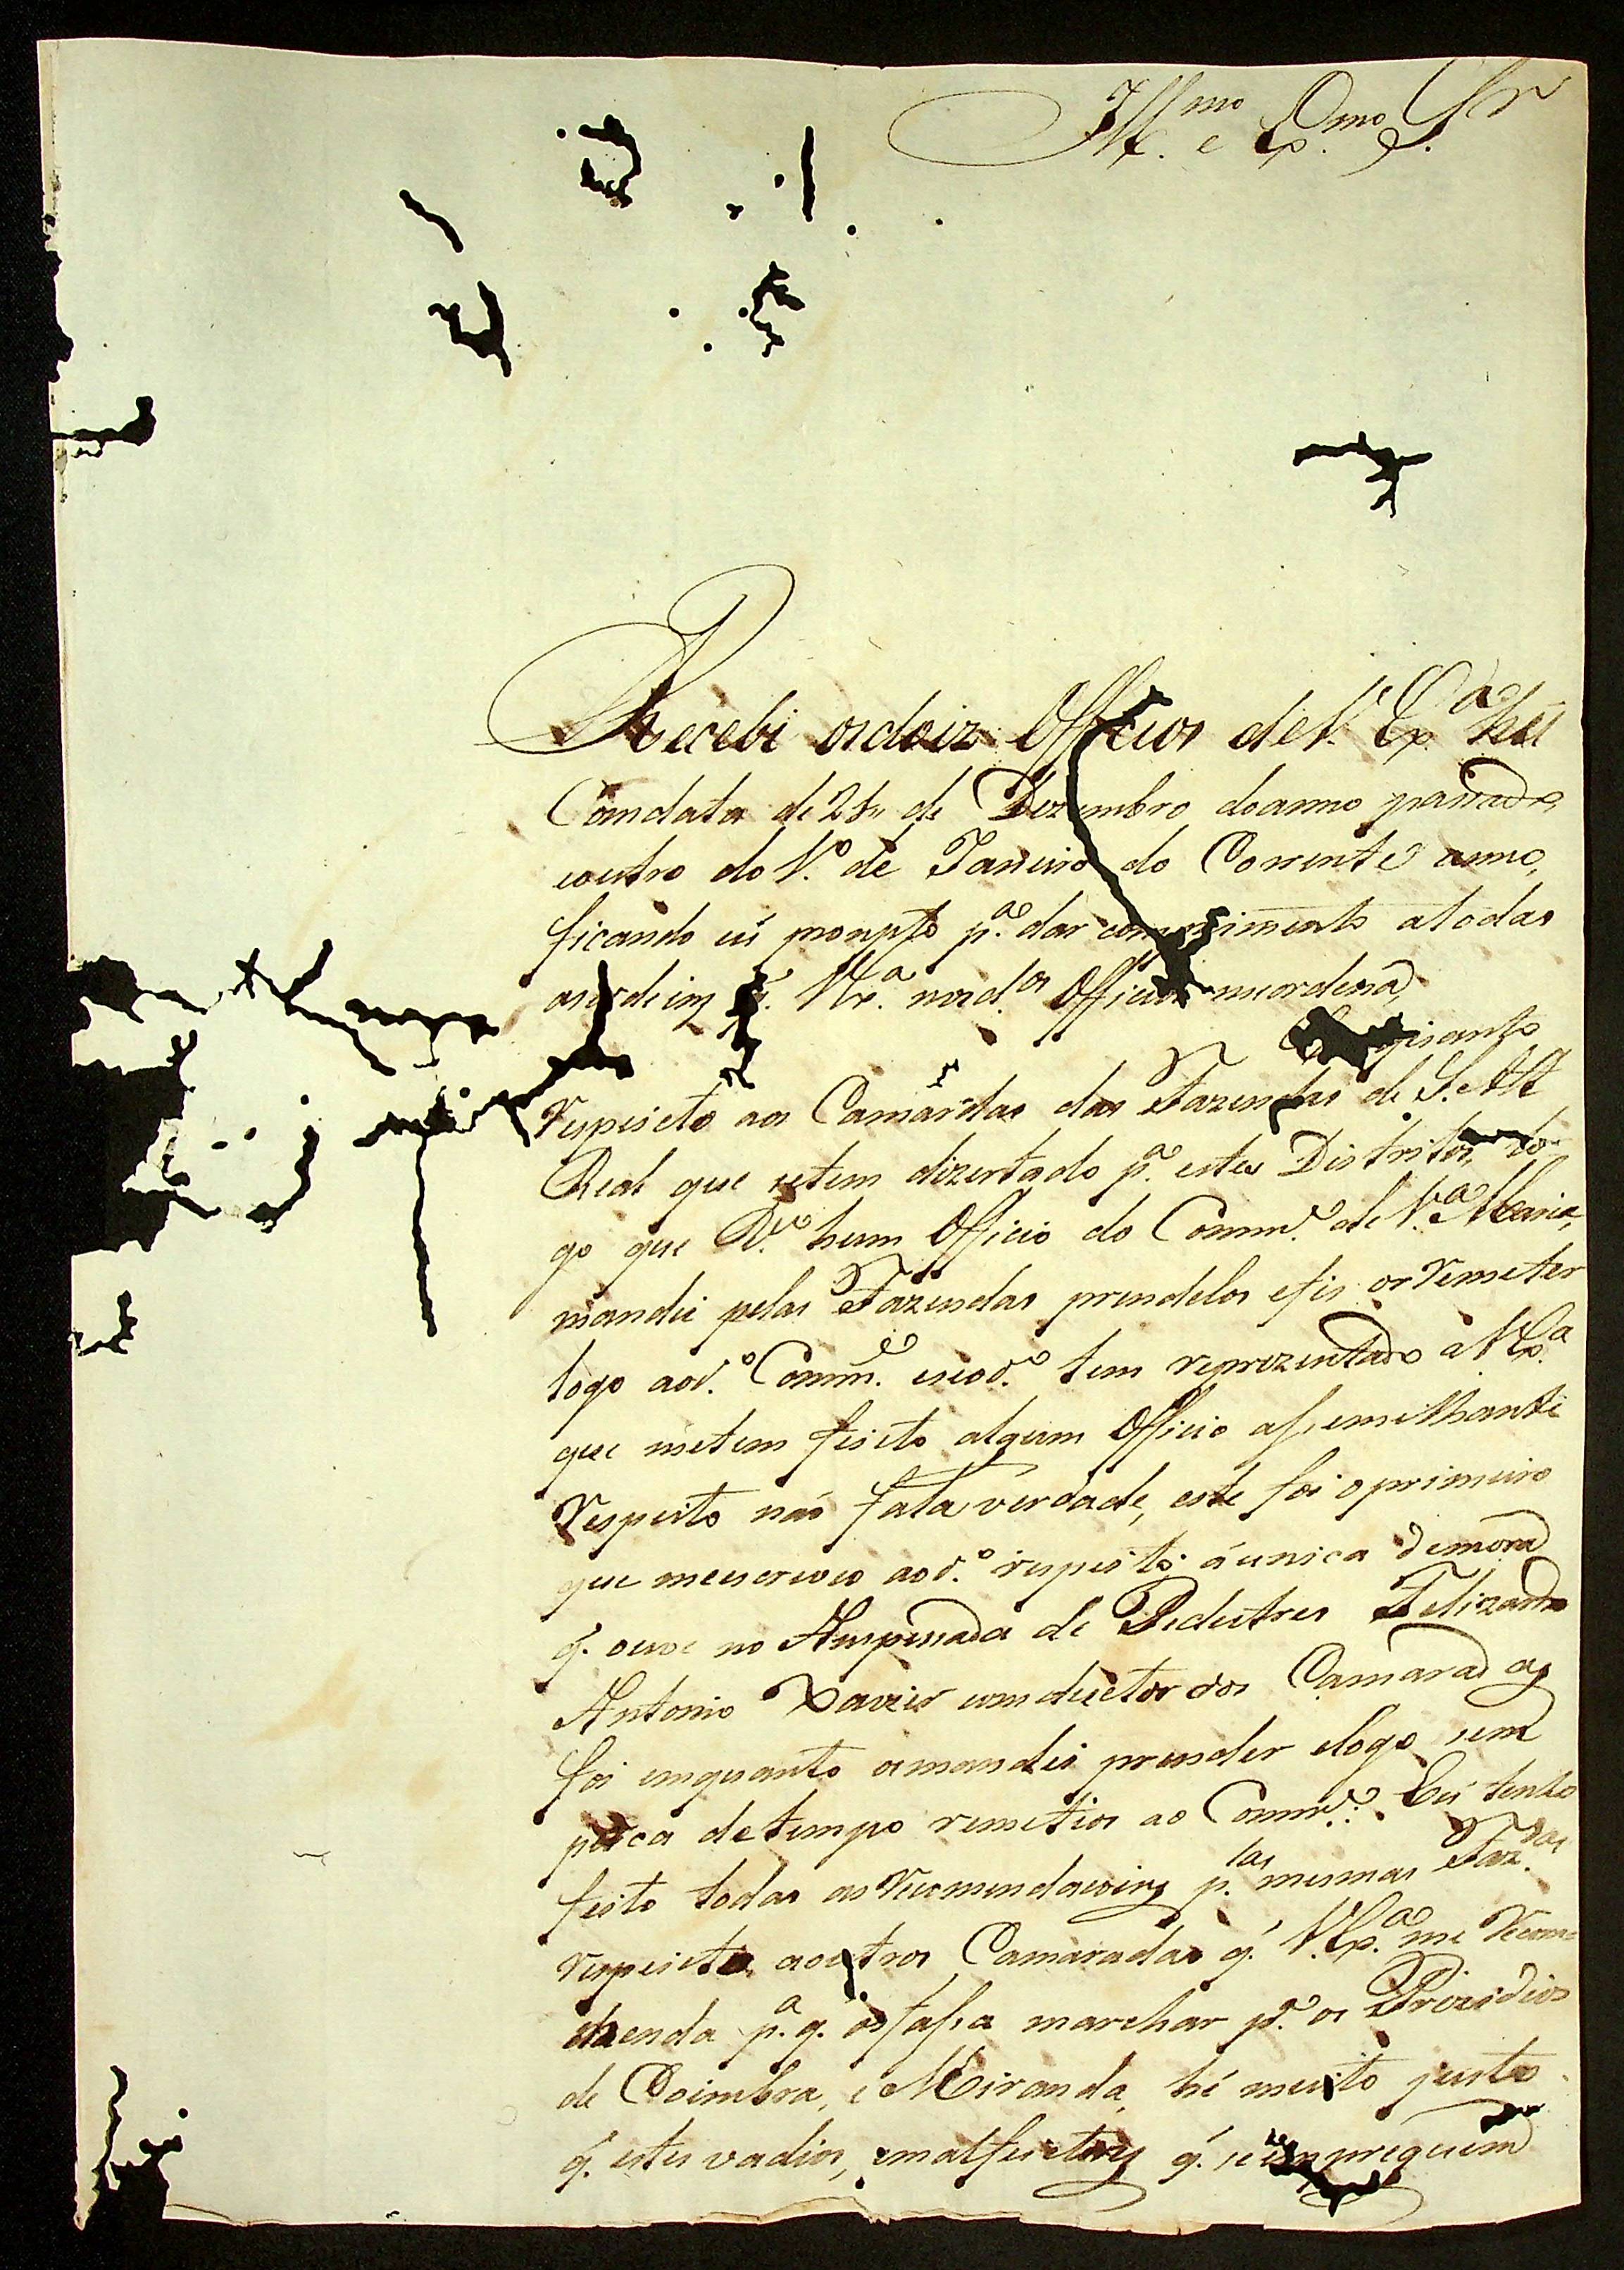 Ill.mo e Ex.mo Sr
Recebi os doiz Officios de V. Ex.a hu
Com data de 24 de Dezembro do anno passado,
e outro do 1.o de Janeiro do Corrente anno,
ficando eu prompto p.a dar comprimento a todas
as ordeins q. V. Ex.a nos d.os Officios me ordena,
En quanto
Respeito aos Camardas das Fazendas de S. A.
Real que se tem dizertado p.a estes Distritos, lo-
go que R.o hum Officio do Comm.e de V.a Maria,
mandei pelas Fazendas prendelos e fis os Remeter
logo ao d.o Comm.e e se o d.o tem reprezentado a V. Ex.a
que me tem feito algum Officio assemelhante
Respeito não fala verdade, este foi o primeiro
que me escreveo ao d.o respeito: a unica demora
q. ouve no Anspesada de Pedestres Felizardo
Antonio Xavier conductor dos Camaradas
foi enquanto os mandei prender e logo sem
perca de tempo remetios ao Comm.e: Eu tenho
feito todas as Recomendacoins p.las mesmas Faz.das
respeito a outros Camaradas q. V. Ex.a me Recom-
menda p.a q. os fassa marchar p.a os Prezidios
de Coimbra, e Miranda, hé muito justo
q. estes vadios, e malfeitores q. se empreguem